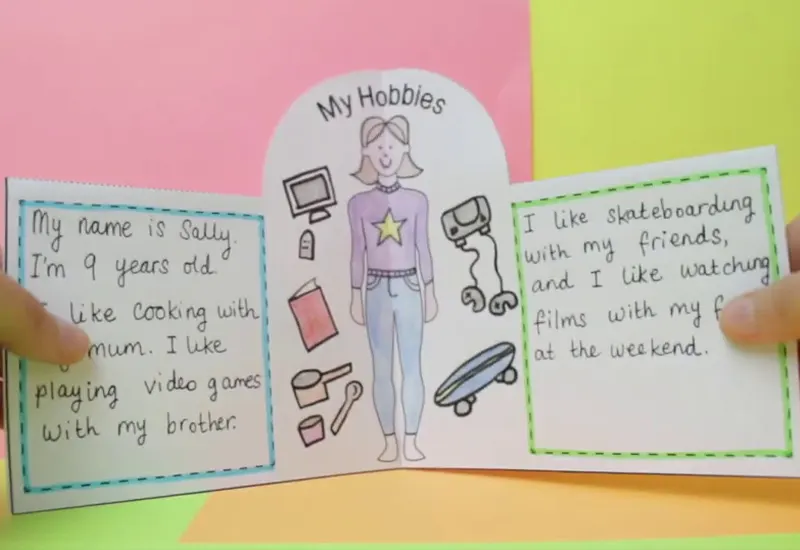 My Hobbies
My name is Sally.
I'm 9 years old.
I like cooking with
mum. I like
playing video games
with my brother.
I like skateboarding
with my friends,
and I like watching
films with my
at the weekend.